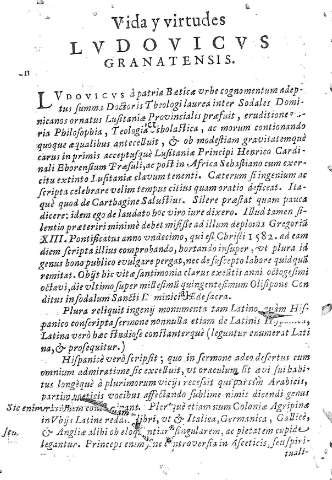 Vida y virtudes
LVDOVICVS
GRANATENSIS.
LVDOVICVS à patria Bæticæ vrbe cognomentum adep-
tus summa Doctoris Theologi laurea inter Sodales Domi-
nicanos ornatus Lusitaniæ Provincialis præfuit, eruditione
ria Philosophia, Teologia Scholastica, ac morum contionando
quoque æqualibus antecelluit, & ob modestiam gravitatemque
carus in primis acceptusque Lusitaniæ Principi Henrico Cardi-
nali Eborensium Præsuli, ac post in Africa Sebastiano cum exer-
citu extinto Lusitaniæ clavum tenenti. Cæterum si ingenium ac
scripta celebrare velim tempus citius quam oratio defficat. Ita-
què quod de Cartbagine Salustius. Silere præstat quam pauca
dicere: idem ego de laudato hoc viro iure dixero. Illud tamen si-
lentio præteriri minimè debet misisse ad illum deploma Gregoriũ
XIII. Pontificatus anno vndecimo, qui fit Christi 1582. ad eam
diem scripta illius comprobando, hortando insuper, vt plura id
genus bono publico evulgare pergas, nec de suscepto labore quidquã
remitas. Obijt hic vitæ sanctimonia clarus exactis anni octogesimi
octavi, die vltimo super millesimũ quingentesimum Olisipone Con
ditus in sodalium Sancti Dominici æde sacra.
Plura reliquit ingenij monumenta tam Latino quàm His-
panico conscripta sermone nonnulla etiam de Latinis
Latina verò hæc studiose constanterque (leguntur enumerat Lati
na, & prosequitur.)
Hispanicè verò scripsit; quo in sermone adeo desertus cum
omnium admiratione sic excelluit, vt oraculum sit avi sui habi-
tus longèquè à plurimorum vicijs recessit qui passim Arabicis,
partim poeticis vocibus affectando sublime nimis dicendi genus
Sic enim
Plerque etiam sum Coloniæ Agripinæ
in Vbijs Latine reddi. libri, vt & Italica, Germanica, Gallicè,
seu.
& Angliæ alibi ob eloquentiam singularem, ac pietatem cupidè
legantur. Princeps enim, nec controversia in Asceticis, seu spiri-
tuali-